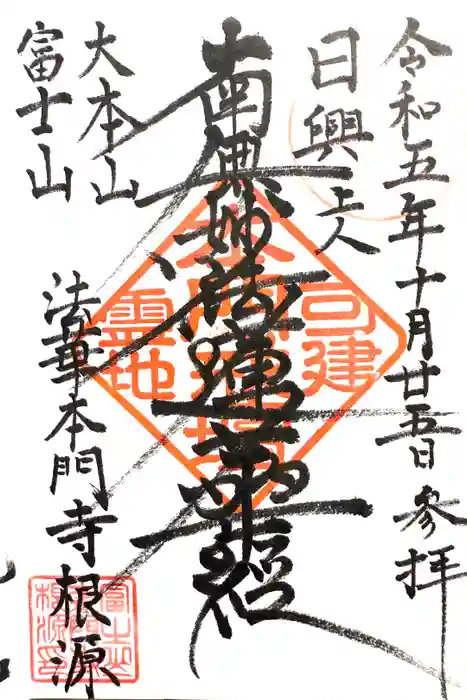 令和五年十月廿五日 参拝
日興上人
南無妙法蓮華経
大本山
富士山
法華本門寺根源
霊地
可建
本門戒壇